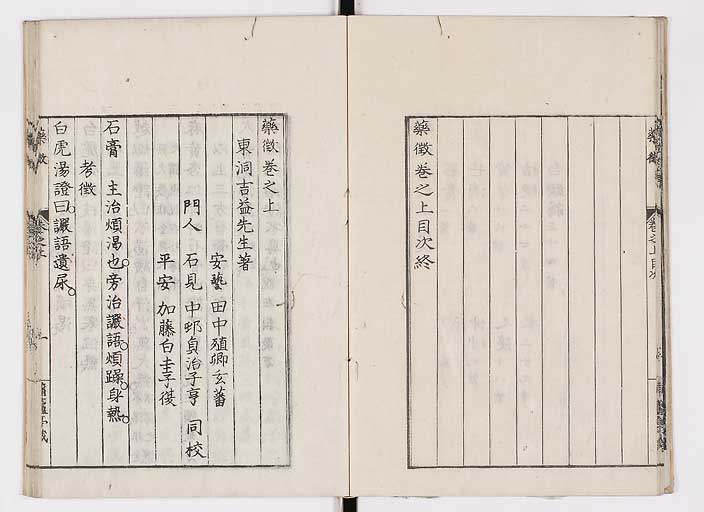 藥徴
卷之上目次
藥徴卷之上目次終
藥徴卷之上
東洞吉益先生著
安藝 田中殖卿玄蕃
門人 石見 中邨貞治子亨 同校
平安 加藤白圭子復
石膏 主治煩渴也。旁治讝語。煩躁。身熱。
考徵
白虎湯證曰。讝語遺尿。
藥徴
卷之上